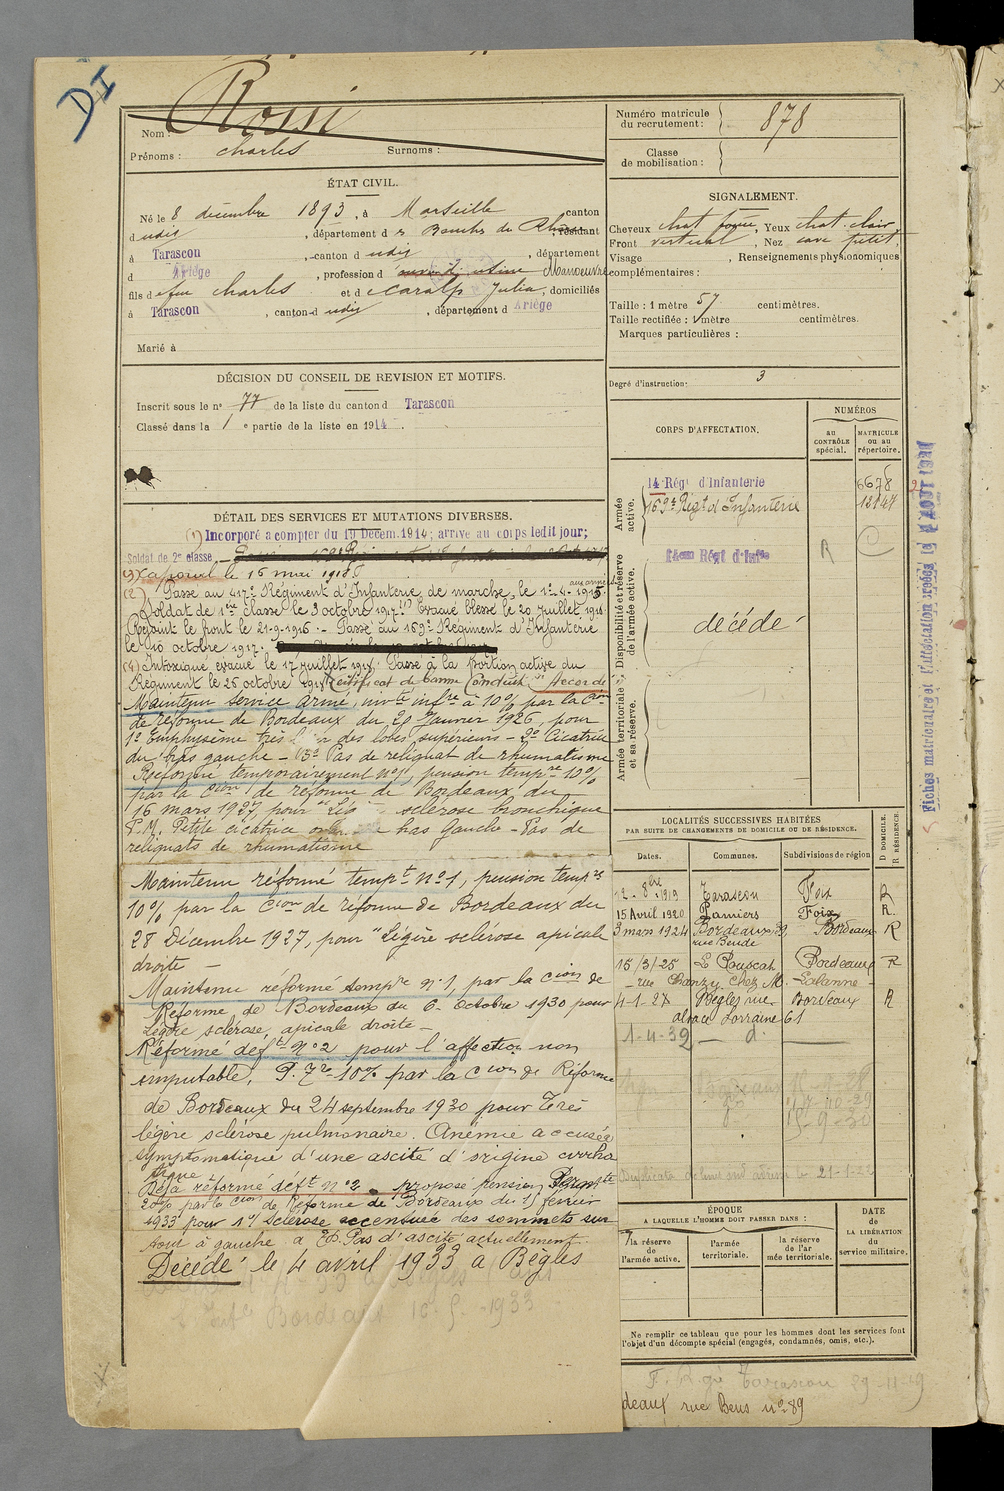 DI
Nom : Rossi
Prénoms : Charles Surnoms :
Numéro matricule
du recrutement : 878
Classe
de mobilisation :
ÉTAT CIVIL.
Né le 8 décembre 1893, à Marseille canton
dudit, département des Bouches du Rhône résidant
à Tarascon, canton dudit, département
d Ariège, profession d Manoeuvre
fils de feu Charles et de Caralp Julia, domiciliés
à Tarascon, canton dudit, département d Ariège
Marié à
SIGNALEMENT.
Cheveux chat foncé, Yeux chat. clair
Front vertical, Nez cave petit.
Visage , Renseignements physionomiques
complémentaires :
Taille : 1 mètre 57 centimètres.
Taille rectifiée : 1 mètre centimètres.
Marques particulières :
Degré d'instruction : 3
DÉCISION DU CONSEIL DE REVISION ET MOTIFS.
Inscrit sous le n° 77 de la liste du canton d Tarascon
Classé dans la 1 e partie de la liste en 1914.
DÉTAIL DES SERVICES ET MUTATIONS DIVERSES.
(1) Incorporé a compter du 19 Décem. 1914; arrivé au corps ledit jour;
Soldat de 2e classe,
(3) Caporal le 16 mai 1918.
aux armées
(2) Passé au 417e Régiment d'Infanterie de marche, le 1-4-1915.
Soldat de 1ère classe le 3 octobre 1917. Evacué blessé le 20 juillet 1916.
Rejoint le front le 21-9-1916. - Passé au 169e Régiment d'Infanterie
le 10 octobre 1917.
(4) Intoxiqué évacué le 17 juillet 1918. Passé à la portion active du
Régiment le 25 octobre 1918. Certificat de bonne Conduite "Accordé"
Maintenu service armé, invté infre à 10% par la Cion
de réforme de Bordeaux du 29 Janvier 1926, pour
1° Emphysème très des lobes supérieurs - 2° Cicatrice
du bras gauche - 3° Pas de reliquat de rhumatisme
Réformé temporairement n°1, pension tempre 10%
par la Cion de réforme de Bordeaux du
16 mars 1927, pour sclérose bronchique
P.M. Petite cicatrice bras gauche - Pas de
reliquats de rhumatisme
Maintenu réformé tempt n°1, pension tempre
10% par la Cion de réforme de Bordeaux du
28 Décembre 1927, pour "Légère sclérose apicale
droite -
Maintenu réformé tempre n°1, par la Cion de
Réforme de Bordeaux du 6 octobre 1930 pour
Légère sclérose, apicale droite -
Réformé déft n°2 pour l'affection non
imputable, P. 7re -10% par la Cion de Réforme
de Bordeaux du 24 septembre 1930 pour Très
légère sclérose pulmonaire. Anémie accusée
symptomatique d'une ascite d'origine cirrho
tique
Déjà réformé déft n°2 proposé pension Permte
20% par la Cion de Réforme de Bordeaux du 15 février
1933 pour 1°/ Sclérose accentuée des sommets sur
tout à gauche Pas d'ascite actuellement.
Décédé le 4 avril 1933 à Bègles
Bordeaux 10-5-1933
CORPS D'AFFECTATION.
NUMÉROS
au
CONTRÔLE
spécial.
MATRICULE
ou au
répertoire.
Armée
active.
14 Régt d'Infanterie 6678
169e Régt d'Infanterie 12147
Disponibilité et réserve
de l'armée active.
14ème Régt d'Infie R
décédé
Armée territoriale
et sa réserve.
LOCALITÉS SUCCESSIVES HABITÉES
PAR SUITE DE CHANGEMENTS DE DOMICILE OU DE RÉSIDENCE.
D DOMICILE.
R RÉSIDENCE.
Dates. Communes. Subdivisions de région
12-8bre 1919 Tarascon Foix R
15 Avril 1920 Pamiers Foix R.
3 mars 1924 Bordeaux 89, Bordeaux R
rue Bende
16/3/25 Le Bouscat Bordeaux R
rue Chanzy chez M. Lalanne -
4-1-27 Bègles rue Bordeaux R
alsace Lorraine 61
1-4-39 — d° —
Bordeaux
15-9-30
ÉPOQUE
A LAQUELLE L'HOMME DOIT PASSER DANS :
DATE
de
LA LIBÉRATION
du
service militaire.
la réserve
de
l'armée active.
l'armée
territoriale.
la réserve
de l'ar
mée territoriale.
Ne remplir ce tableau que pour les hommes dont les services font
l'objet d'un décompte spécial (engagés, condamnés, omis, etc.).
Tarascon 29-11-19
deaux rue Bens n° 89
Fiches matriculaire et d'affectation créées le